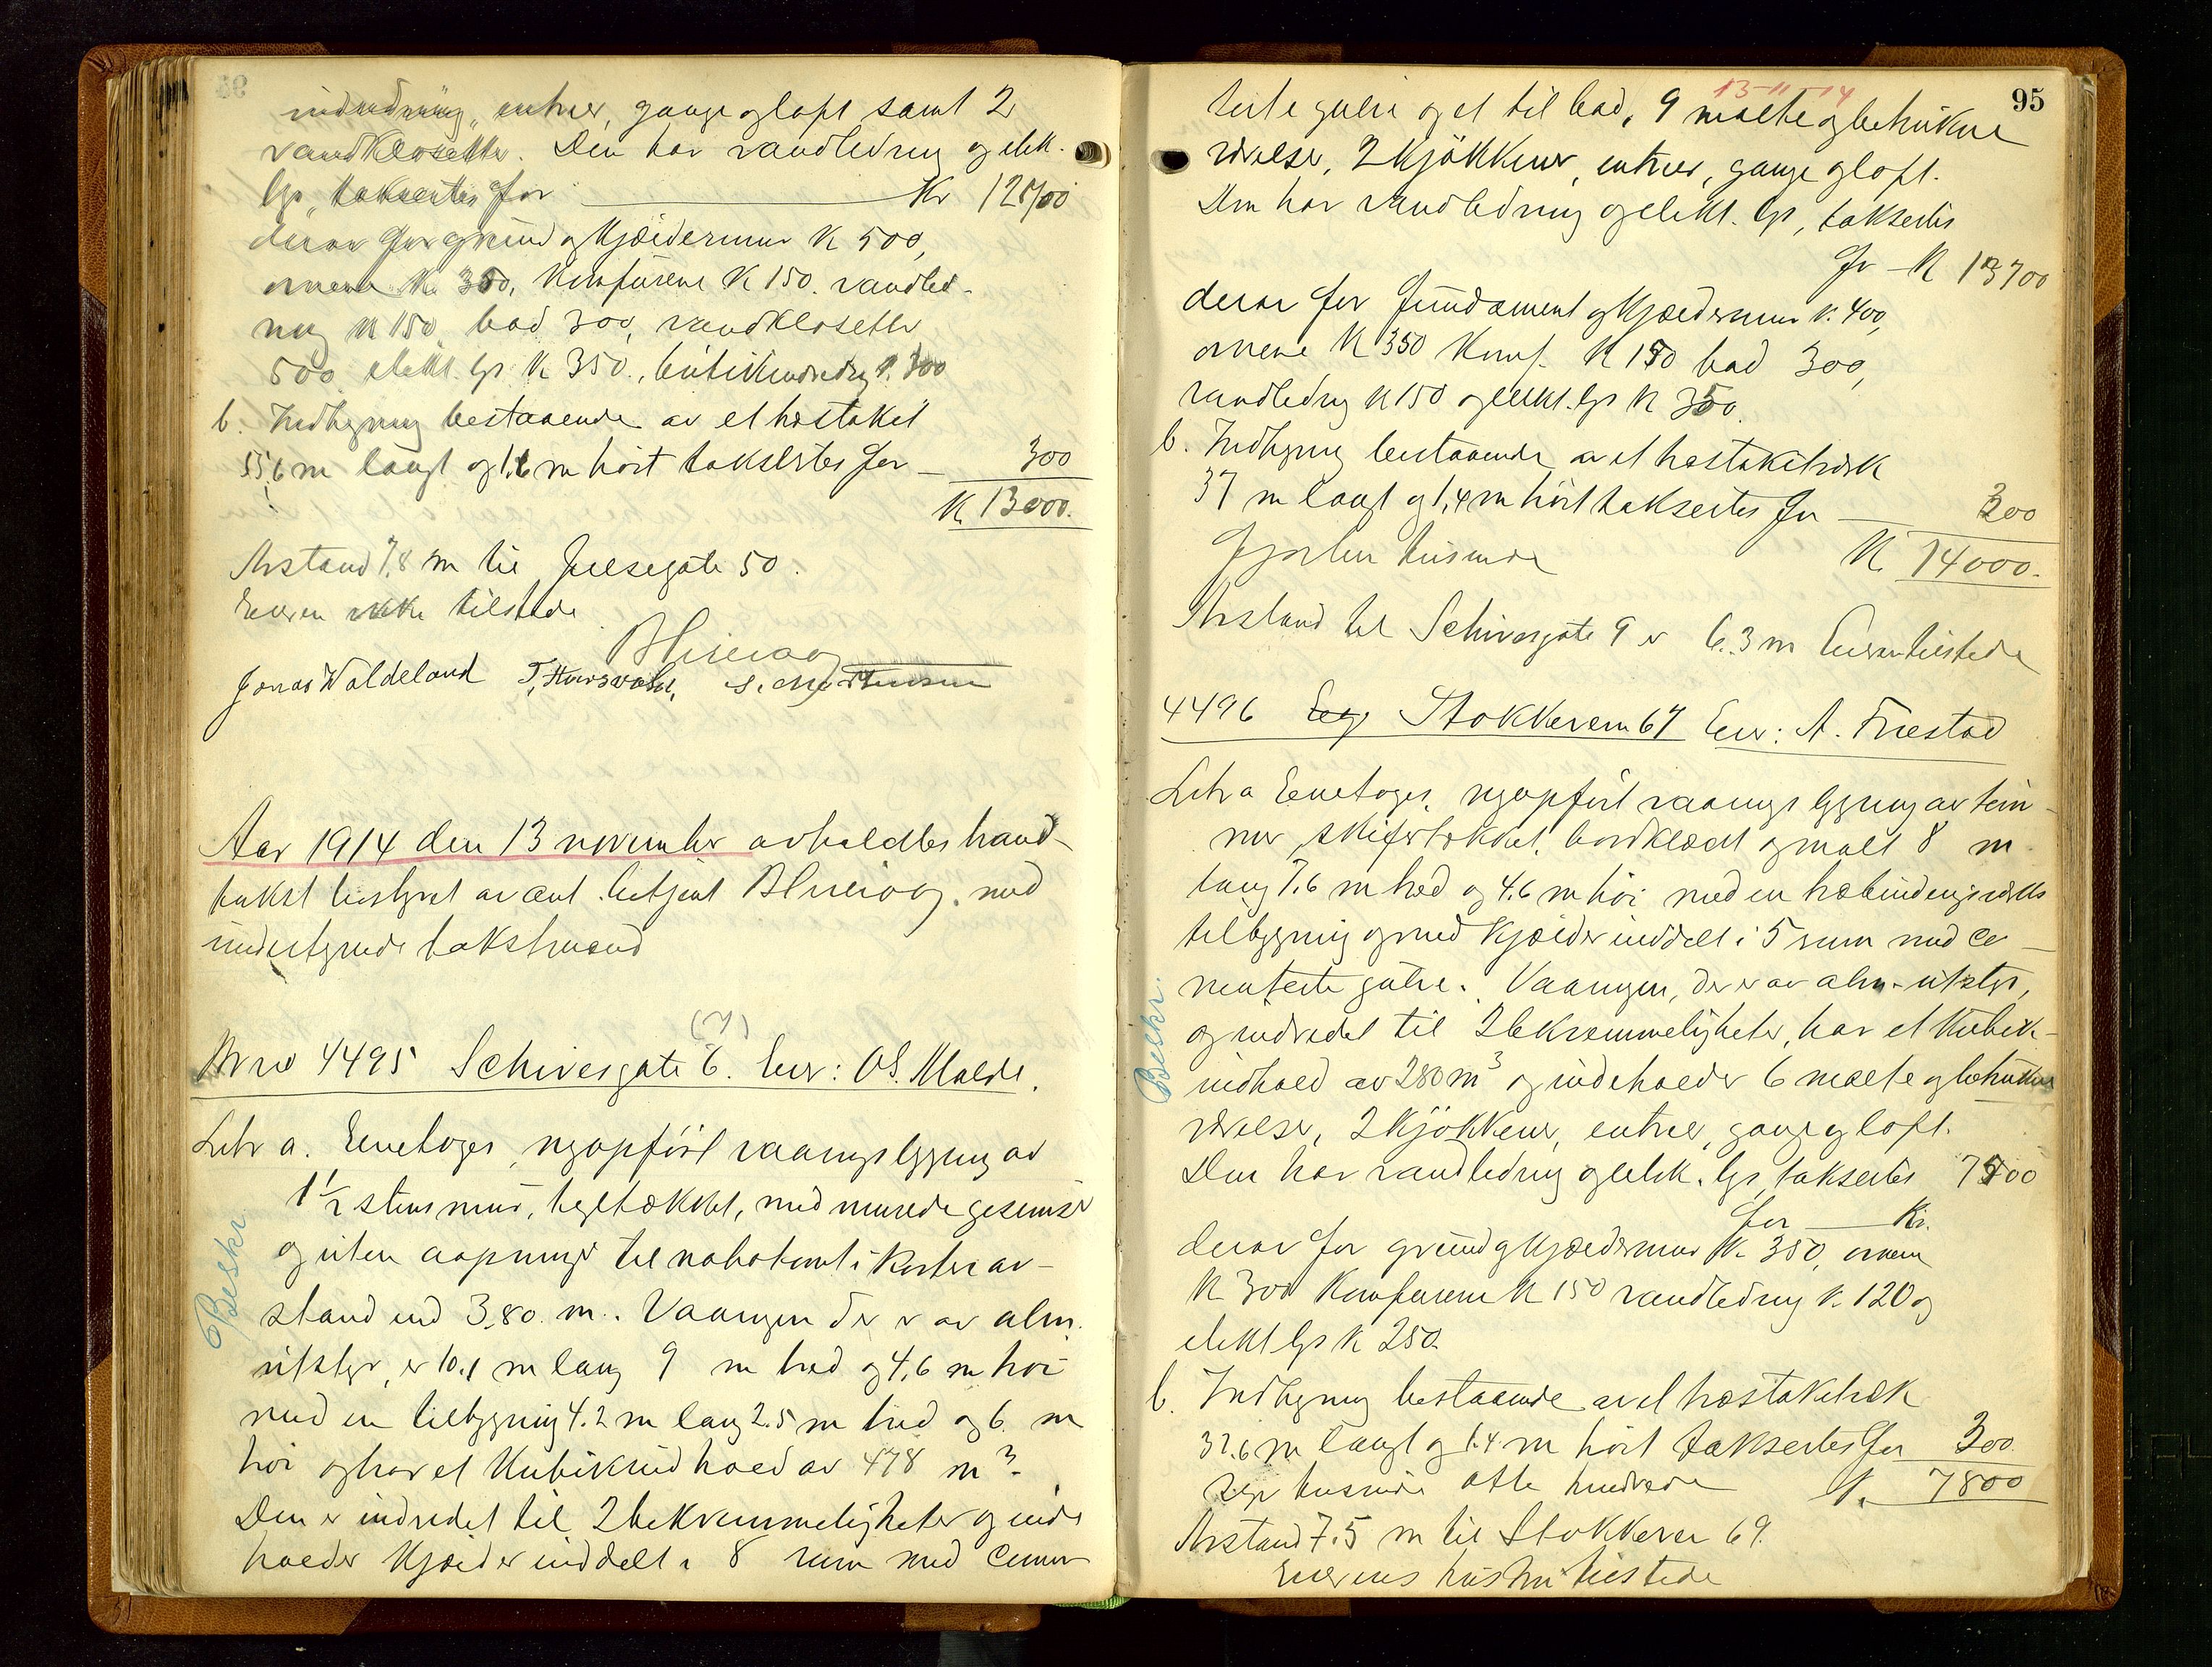 indredning, entreer, gange og loft samt 2
vandklosetter. Den har vandledning og elek.
lys, taksertes for Kr 12700
derav for grund og kjældermur K 500,
ovnene K. 350, komfurene K 150. vandled-
ning K 150, bad 300, vandklosetter
500 elekt. lys K 350, butikindredng K. 300
b. Indhegning bestaaende av et hæstakit
55,6 m langt og 1,6 m höit taksertes for 300
K. 13000.
Avstand 7,8 m til Jelsegate 50.
Eieren ikke tilstede
Jonas Waldeland T. Hausvold, S. Mortensen
Aar 1914 den 13 november avholdtes brand-
takst bestyret av ant. betjent med
undertegnede takstmænd
(7)
No 4495 Schivesgate 6. Eier: O.S. Malde.
Litr a. Eenetages, nyopfört vaaningsbygning av
1 1/2 stens mur, tegltækket, med murede gesimser
og uten aapninger til nabotomt i kortere av-
stand end 3,80 m. Vaaningen der er av alm.
utstyr, er 10.1 m lang 9 m bred og 4,6 m höi
med en tilbygning 4.2 m lang 2.5 m bred og 6 m
höi og har et kubikindhold av 478 m³.
Den er indredet til 2 bekvemmeligheter og inde
holder kjælder inddelt i 8 rum med cemen
Beskr
95
13-11-14
terte gulve og et til bad, 9 malte og betrukne
værelser, 2 kjökkener, entreer, gange og loft.
Den har vandledning og elekt. lys, taksertes
for K 13700
derav for fundament og kjældermur K. 400,
ovnene K 350 komf. K 150 bad 300,
vandledng K 150 og elekt. lys K 350.
b. Indhegning bestaaende av et hæstakitværk
37 m langt og 1,4 m höit taksertes for 300
Fjorten tusende K. 14000.
Avstand til Schivesgate 9 er 6.3 m Eieren tilstede
4496 Eeg Stokkeveien 67 Eier: A. Friestad
Litr a Eenetages, nyopfört vaaningsbygning av töm-
mer, skifertækket, bordklædt og malt 8 m
lang 7,6 m bred og 4,6 m höi med en træbindingsværks
tilbygning og med kjælder inddelt i 5 rum med ce-
menterte gulve. Vaaningen, der er av alm. utstyr,
og indredet til 2 bekvemmeligheter, har et kubik-
indhold av 280 m³ og indeholder 6 malte og betrukne
værelser, 2 kjökkener, entreer, gange og loft.
Den har vandledning og elek. lys, taksertes 7500
for Kr.
derav for grund og kjældermur K. 350, ovnene
K 300 komfurene K 150 vandledning K. 120 og
elekt lys K 250.
b. Indhegning bestaaende av et hæstakitværk
37.6 m langt og 1.4 m höit taksertes for 300.
Syv tusinde otte hundrede K. 7800
Avstand 7.5 m til Stokkeveien 69.
Eierens hustru tilstede
Beskr.